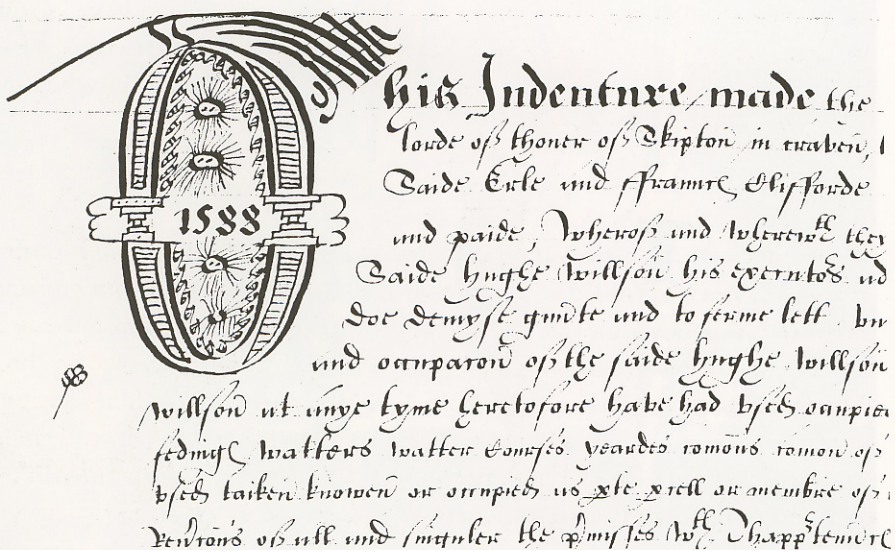 This Indenture made the
lorde of thonor of Skipton in craven,
Saide Erle and ffraunc Clifforde
and paide, Wherof and wherewth they
1588
Saide hughe Willson his executors
doe demyse graunte and to ferme lett
and occupacon of the saide hughe Willson
Willson at anye tyme heretofore have had vsed occupied
feding watters watter courses yeardes comons comon of
vsed taiken knowen or occupied as pte pcell or membre of
Revcons of all and singuler the pmisses wth Thapptennc